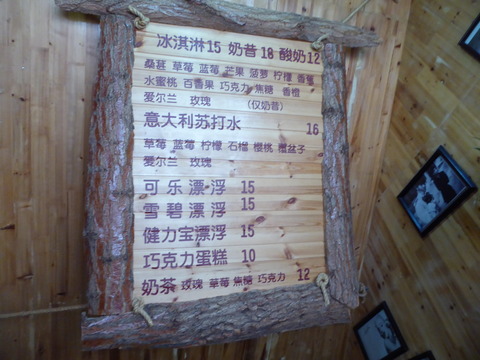 冰淇淋15 奶昔18 酸奶12
桑葚 草莓 蓝莓 芒果 菠萝 柠檬 香蕉
水蜜桃 百香果 巧克力 焦糖 香橙
爱尔兰 玫瑰 (仅奶昔)
意大利苏打水 16
草莓 蓝莓 柠檬 石榴 樱桃 覆盆子
爱尔兰 玫瑰
可乐漂浮 15
雪碧漂浮 15
健力宝漂浮 15
巧克力蛋糕 10
奶茶 玫瑰 草莓 焦糖 巧克力 12